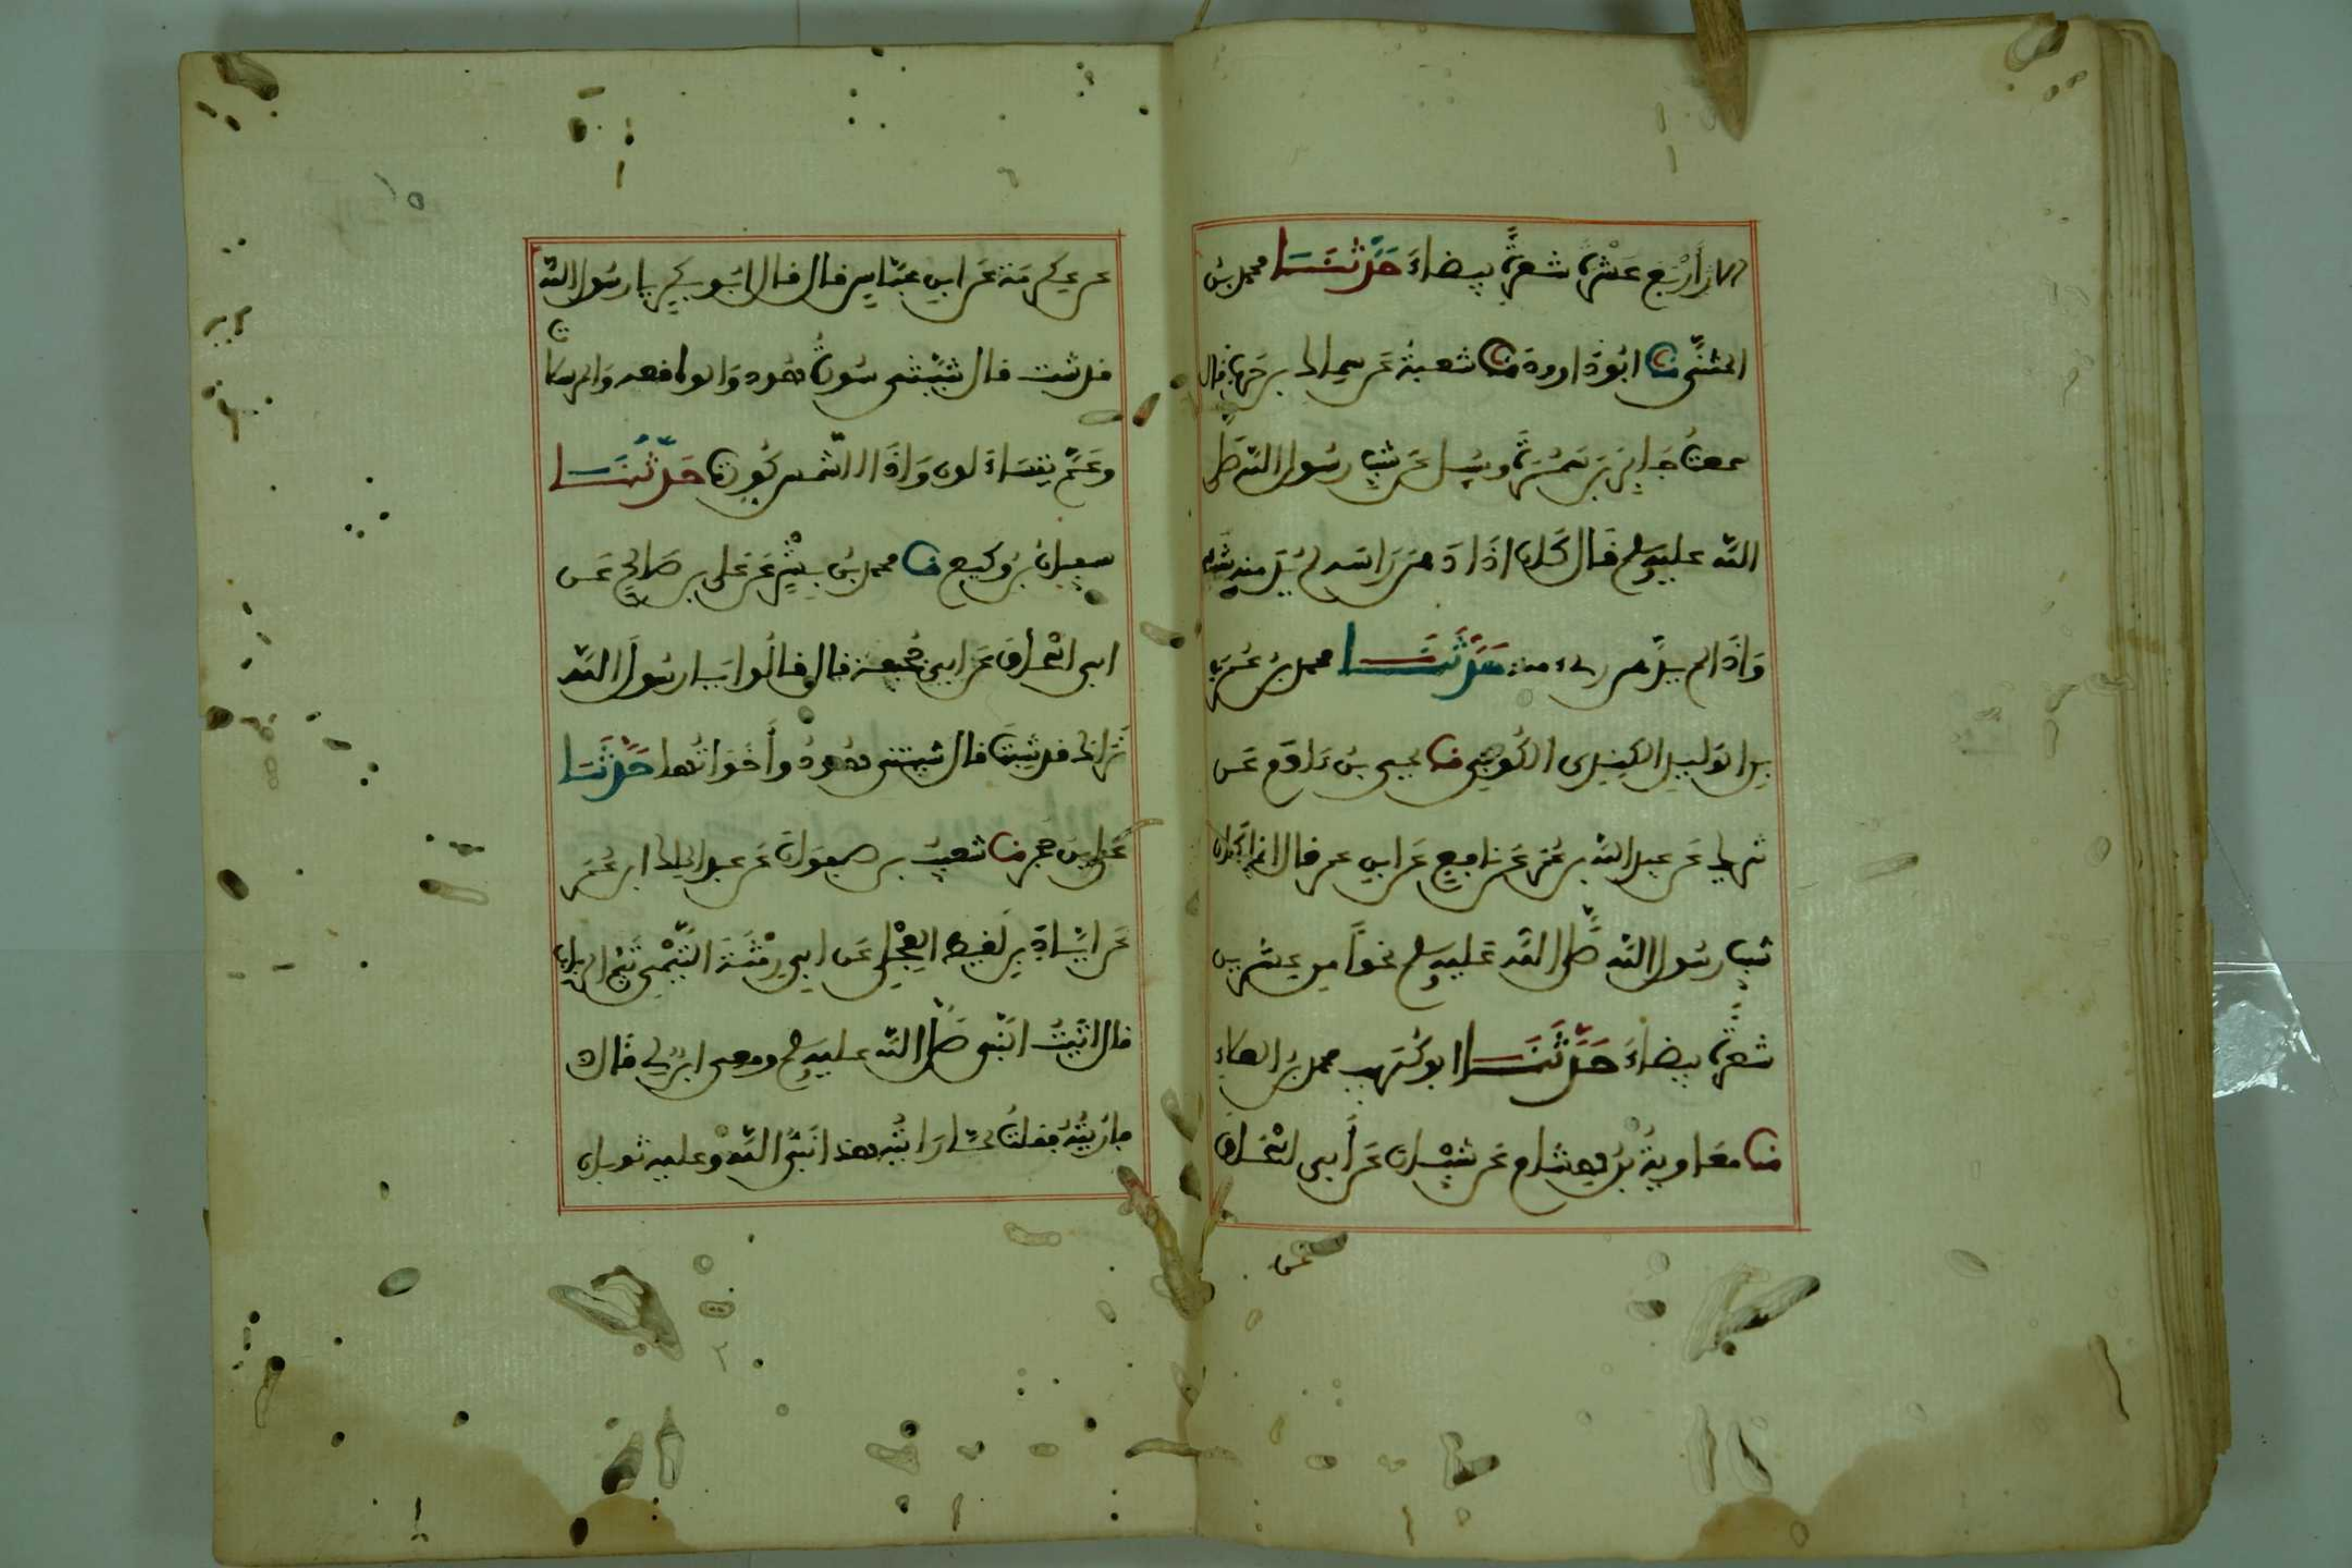 الا أربع عشرة شعرة بيضاء حدثنا محمد بن
المثنى نا ابو داوود نا شعبة عن سماك بن حرب قال
سمعت جابر بن سمرة وسيل عن شيب رسول الله صلى
الله عليه وسلم فقال كان اذا دهن راسه لم ير منه شيب
واذا لم يدهن رءى منه حدثنا محمد بن عمر
بن الوليد الكندي الكوفي نا يحيى بن ءادم عن
شريك عن عبد الله بن عمر عن نافع عن ابن عمر قال انما كان
شيب رسول الله صلى الله عليه وسلم نحوا من عشرين
شعرة بيضاء حدثنا ابو كريب محمد بن العلاء
نا معاوية بن هشام عن شيبان عن أبي اسحاق
عن
عن عكرمة عن ابن عباس قال قال ابو بكر يا رسول الله
قد شبت قال شيبتني سورة هود والواقعة والمرسلات
وعم يتساءلون واذا الشمس كورت حدثنا
سفيان بن وكيع نا محمد بن بشر عن علي بن صالح عن
ابي اسحاق عن ابي جحيفة قال قالوا يا رسول الله
نراك قد شبت قال شيبتني هود وأخواتها حدثنا
علي بن حجر نا شعيب بن صفوان عن عبد الملك بن عمير
عن اياد بن لقيط العجلي عن ابي رمثة التيمي تيم الرباب
قال اتيت النبي صلى الله عليه وسلم ومعي ابن لي قال
فأريته فقلت لما رايته هذا نبي الله وعليه ثوبان